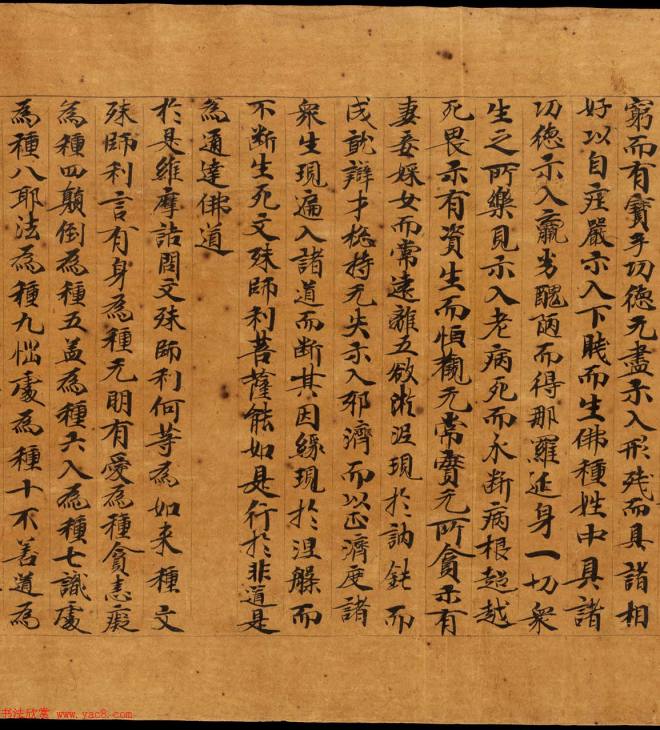 窮而有寶手功德无盡示入形殘而具諸相
好以自莊嚴示入下賤而生佛種姓中具諸
功德示入羸劣醜陋而得那羅延身一切衆
生之所樂見示入老病死而永斷病根超越
死畏示有資生而恒觀无常實无所貪示有
妻妾婇女而常遠離五欲淤泥現於訥鈍而
成就辯才捴持无失示入邪濟而以正濟度諸
衆生現遍入諸道而斷其因緣現於涅槃而
不断生死文殊師利菩薩能如是行於非道是
為通達佛道
於是維摩詰問文殊師利何等為如来種文
殊師利言有身為種无明有愛為種貪恚癡
為種四顛倒為種五盖為種六入為種七識處
為種八耶法為種九惱處為種十不善道為
书法欣赏 www.yac8.com